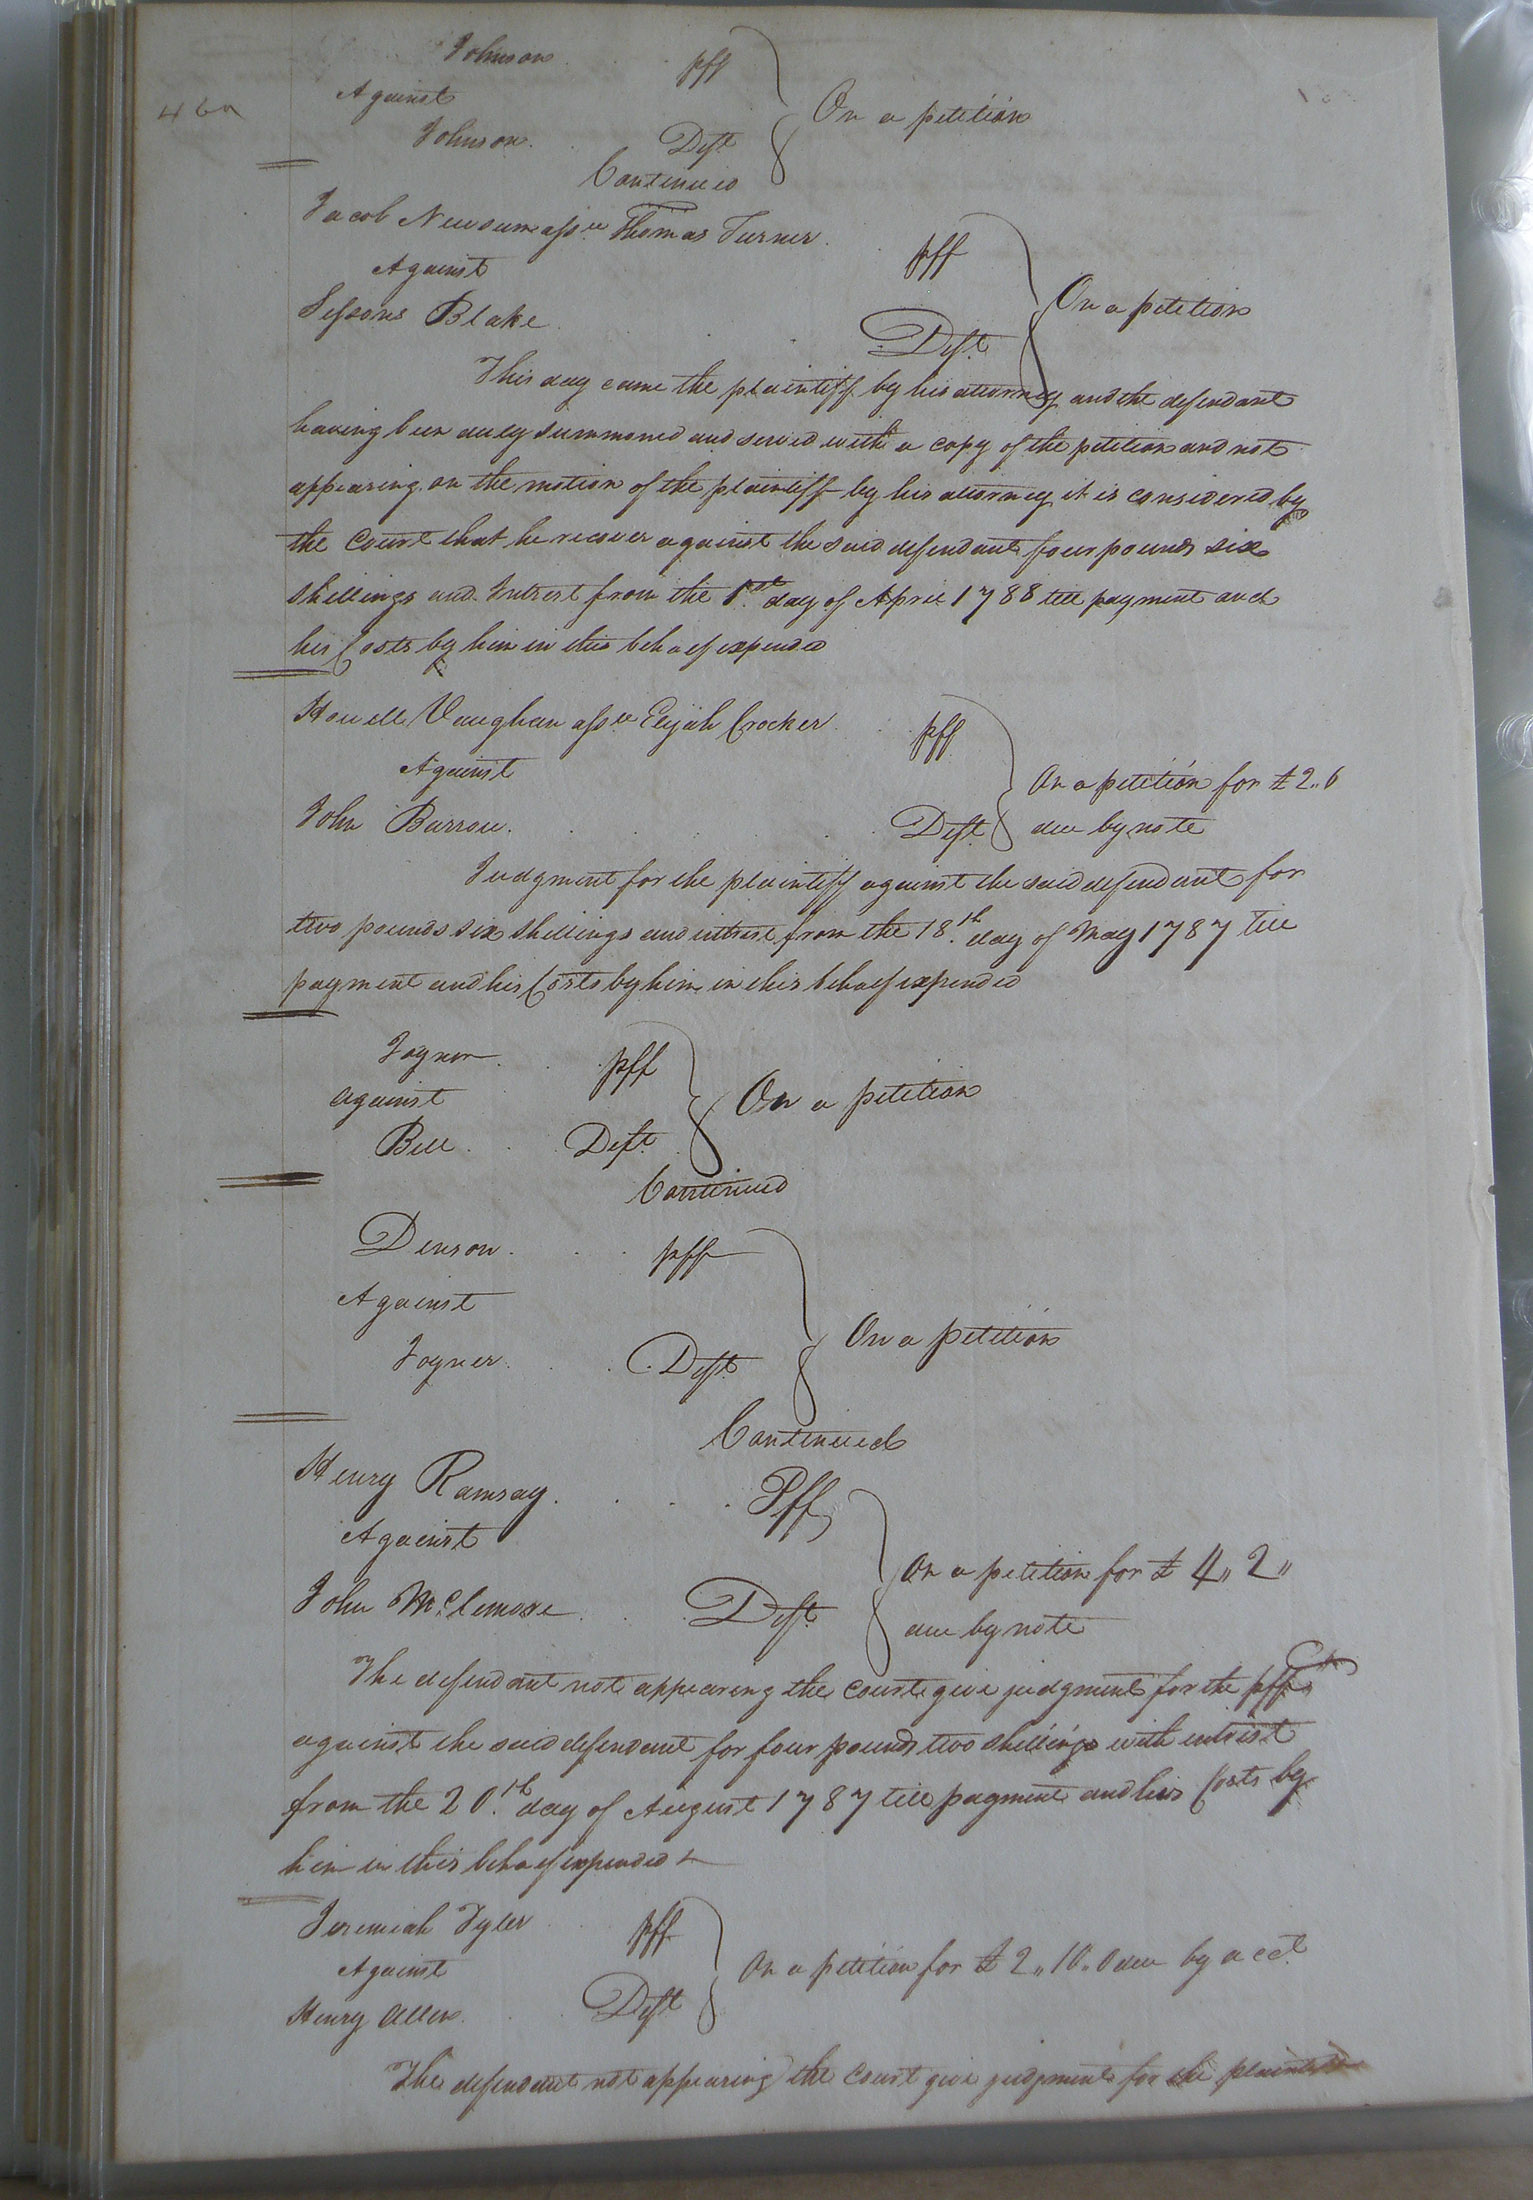 Johnson . . pff
Against
Johnson . . Deft
On a petition
Continued
Jacob Newsum assee Thomas Turner . . pff
Against
Sessoms Blake . . Deft
On a petition
This day came the plaintiff by his attorney and the defendant
having been duly summoned and served with a copy of the petition and not
appearing on the motion of the plaintiff by his attorney it is considered by
the Court that he recover against the said defendant four pounds six
shillings and Intrest from the 1st day of April 1788 till payment and
his Costs by him in this behalf expended
Howell Vaughan assee Elijah Crocker . . pff
Against
John Barrow . . Deft
On a petition for £2..6
due by note
Judgment for the plaintiff against the said defendant for
two pounds six shillings and intrest from the 18th day of May 1787 till
payment and his Costs by him in this behalf expended
Joyner . . pff
against
Bell . . Deft
On a petition
Continued
Denson . . pff
Against
Joyner . . Deft
On a petition
Continued
Henry Ramsay . . . Pff
Against
John McLemore . . Deft
On a petition for £ 4,, 2,,
due by note
The defendant not appearing the Court give judgment for the pff
against the said defendant for four pounds two shillings with intrest
from the 20th day of August 1787 till payment and his Costs by
him in this behalf expended
Jeremiah Tyler . . pff
Against
Henry Allen . . Deft
On a petition for £ 2,, 10,, 0 due by acct
The defendant not appearing the Court give judgment for the plaintiff